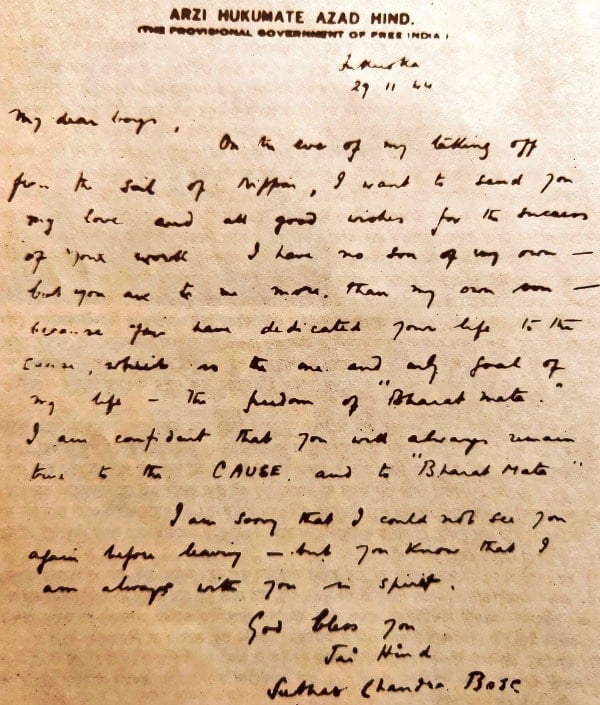 ARZI HUKUMATE AZAD HIND.
(THE PROVISIONAL GOVERNMENT OF FREE INDIA)
Fukuoka
29 11 44
My dear boys,
On the eve of my taking off
from the soil of Nippon, I want to send you
my love and all good wishes for the success
of your work I have no son of my own —
but you are to me more. than my own son —
because you have dedicated your life to the
cause, which is the one and only goal of
my life — the freedom of "Bharat Mata."
I am confident that you will always remain
true to the CAUSE and to "Bharat Mata"
I am sorry that I could not see you
again before leaving — but you know that I
am always with you in spirit.
God bless you
Jai Hind
Subhas Chandra Bose